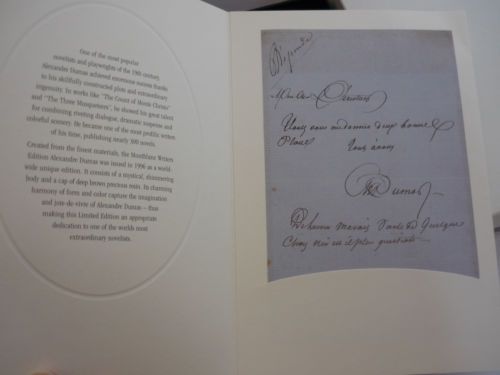 One of the most popular
novelists and playwrights of the 19th century,
Alexandre Dumas achieved enormous success thanks
to his skillfully constructed plots and extraordinary
ingenuity. In works like "The Count of Monte Christo"
and "The Three Musqueteers", he showed his great talent
for combining riveting dialogue, dramatic suspense and
colorful scenery. He became one of the most prolific writers
of his time, publishing nearly 300 novels.
Created from the finest materials, the Montblanc Writers
Edition Alexandre Dumas was issued in 1996 as a world-
wide unique edition. It consists of a mystical, shimmering
body and a cap of deep brown precious resin. Its charming
harmony of form and color capture the imagination
and joie-de-vivre of Alexandre Dumas – thus
making this Limited Edition an appropriate
dedication to one of the worlds most
extraordinary novelists.
Vous
Dumas